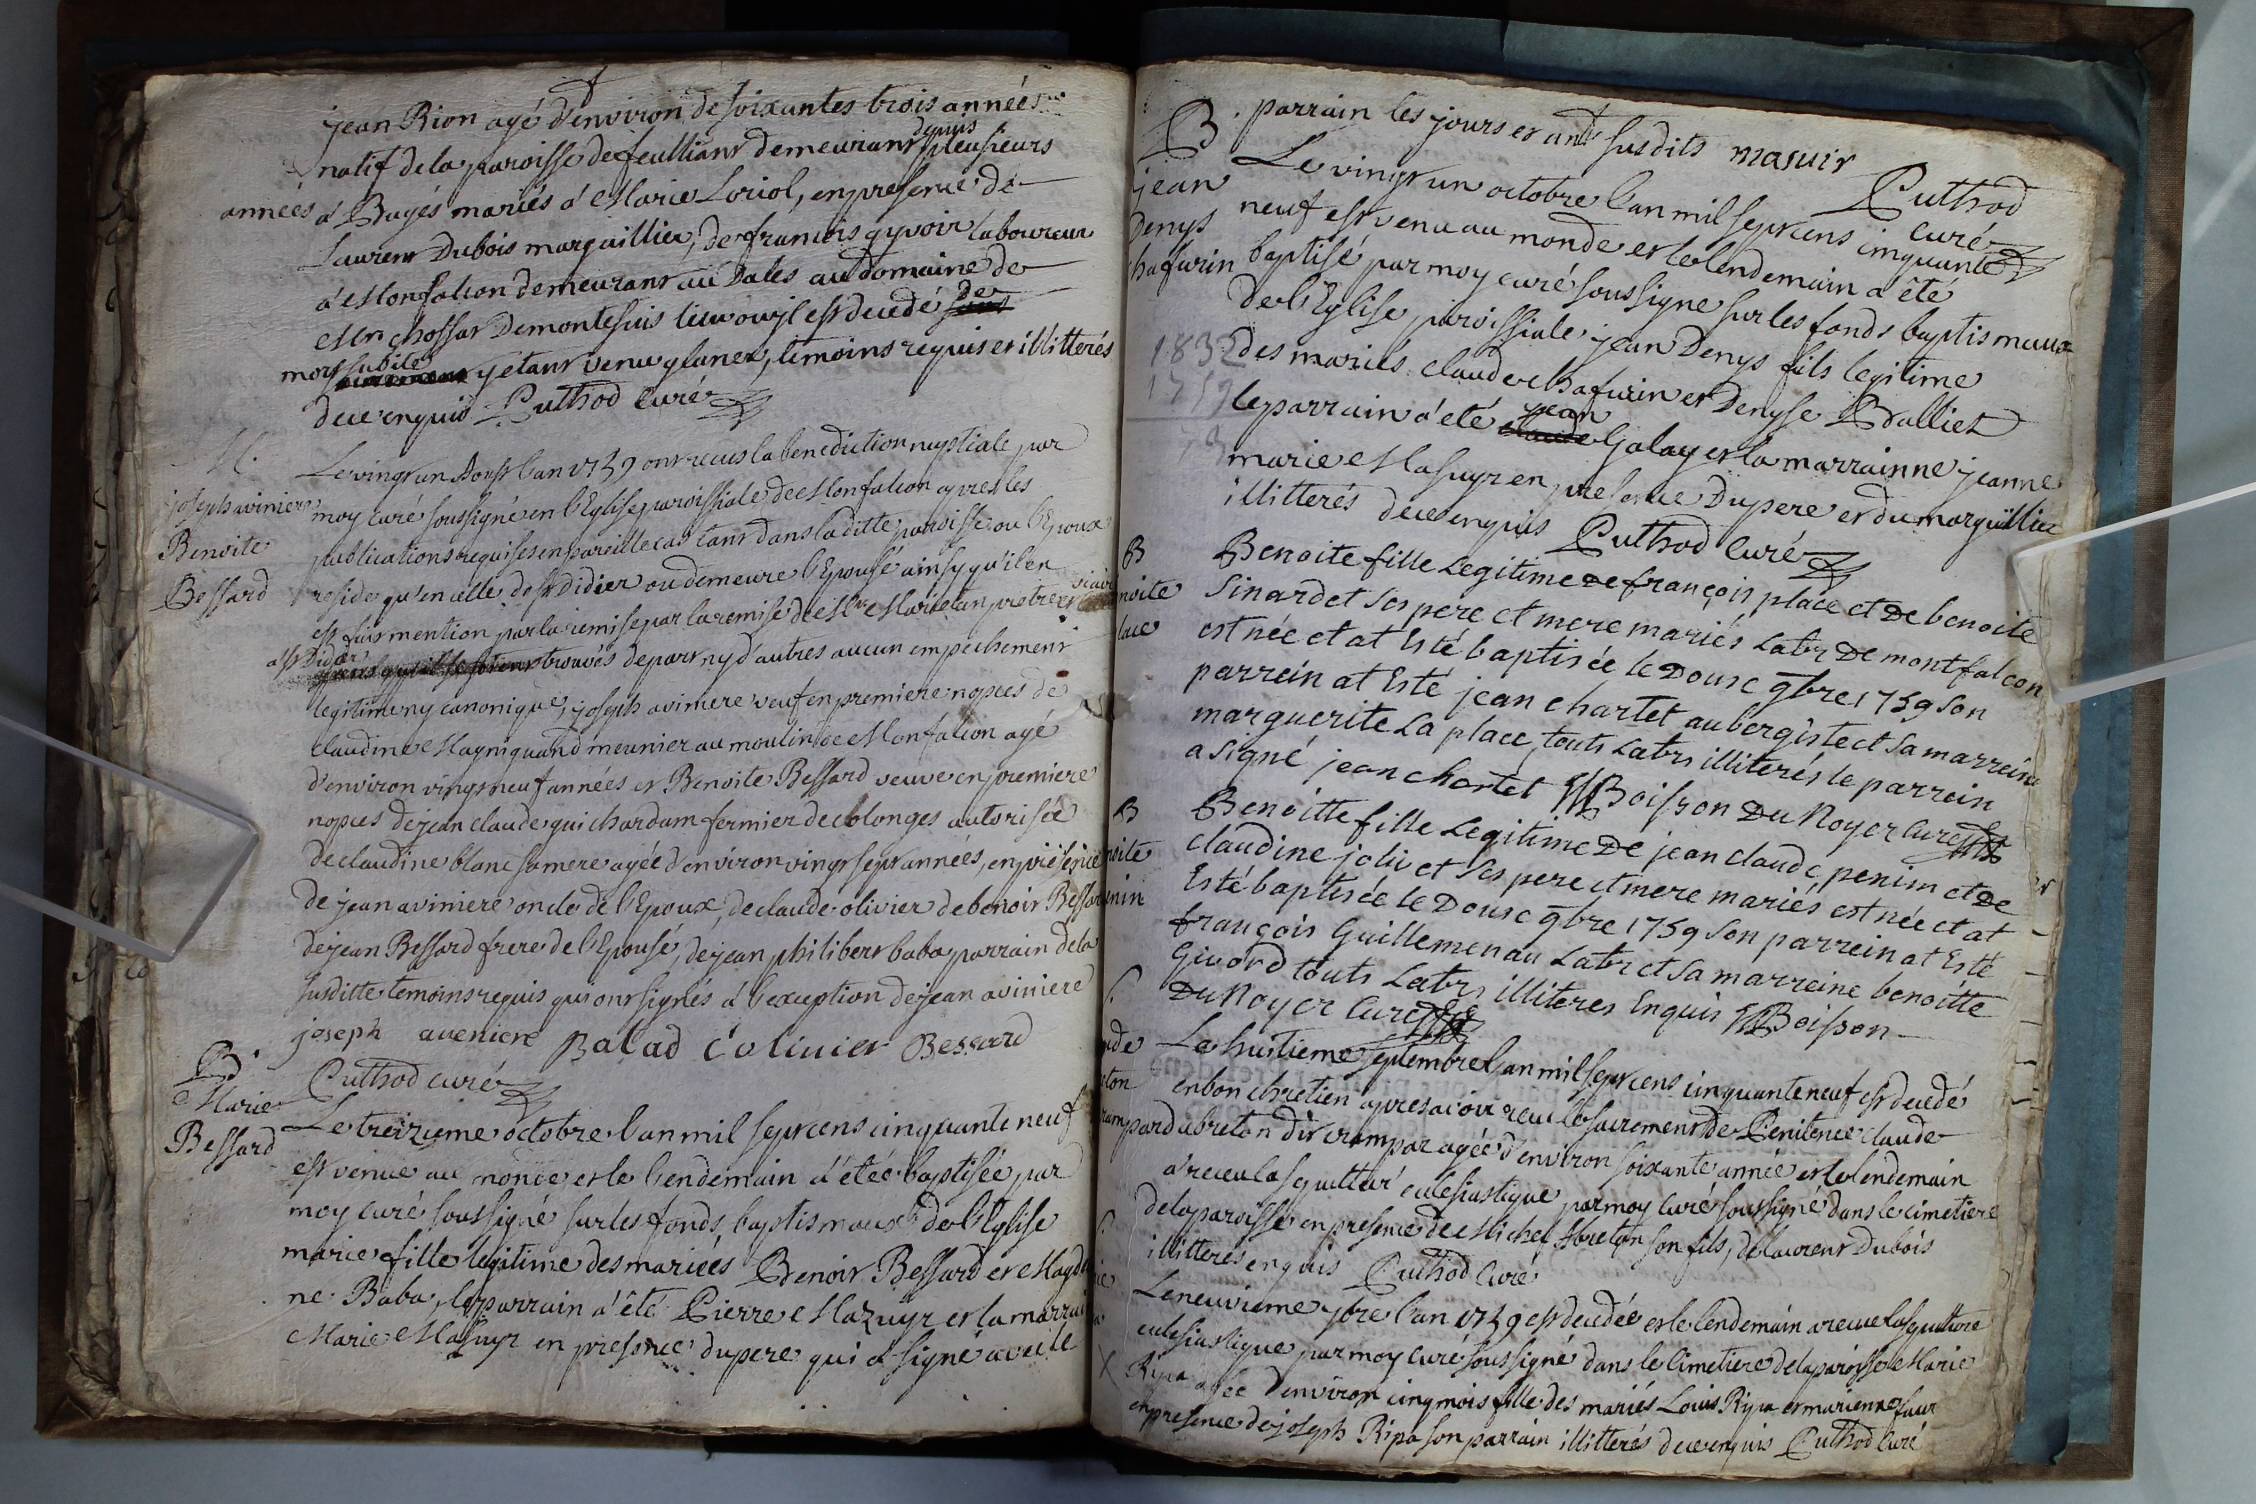 jean Rion agé d'environ de soixantes trois années
natif de la paroisse de feullians demeurant depuis plusieurs
années á Bagés mariés á Marie Loriol, en presence de
Laurent Dubois marguillier, de francois gyvoir laboureur
á Monfalcon demeurant au Sales au domaine de
Mr chossat Demontesuis lieu ou yl est decedé de
mort subite y etant venu glaner, temoins requis et illitterés
de ce enquis Puthod Curé
M.
joseph aviniere
Benoite
Bessard
Le vingt un Aoust l'an 1759 ont recus la benediction nuptiale par
moy curé soussigné en l'Eglise paroissiale de Monfalcon apres les
publications requises en pareille cas tant dans la ditte paroisse ou l'Epoux
reside qu'en celle de St Didier ou demeure l'Epousé ainsy qu'il en
est fais mention par la remise par la remise de Mre Marietan pretre et vicaire
á St Didier trouvés de part ny d'autres aucun empechement
legitime ny canonique, joseph aviniere veuf en premiere nopces de
claudine Magniquand meunier au moulin de Monfalcon agé
d'environ vingt neuf années et Benoite Bessard veuve en premiere
nopces de jean claude guichardam fermier de colonges autorisée
de claudine blanc sa mere agée d'environ vingt sept années, en presence
de jean aviniere oncle de l'Epoux, de claude olivier de benoit Bessard
de jean Bessard frere de l'Epousé, de jean philibert baba parrain de la
susditte temoins requis qui ont signés á l'exception de jean aviniere
joseph aveniere Balad C olivier Bessard
Puthod curé
B.
Marie
Bessard
Le treizieme octobre l'an mil sept cens cinquante neuf
est venue au monde et le lendemain á étée baptisée par
moy curé soussigné sur les fonds baptismaux de l'Eglise
marie fille legitime des mariées Benoit Bessard et Magde
ne Baba, le parrain á été Pierre Mazuyr et la marrai
Marie Masuyr en presence du pere qui á signé avec le
parrain les jours et ans susdits masuir
Puthod
curé
B
jean
Denys
chafurin
Le vingt un octobre l'an mil sept cens cinquante
neuf est venu au monde et le lendemain a été
baptisé par moy curé soussigné sur les fonds baptismaux
de l'Eglise paroissiale jean Denys fils legitime
des mariés claude chafurin et Denyse Balliet
le parrain á été jean Galay et la marrainne jeanne
marie Masuyr en presence du pere et du marguillier
illitterés de ce enquis Puthod Curé
1832
1759
73
B
noite
lace
Benoite fille Legitime de françois place et De benoite
Sinardet Ses pere et mere mariés Labr De montfalcon
est née et at Esté baptisée le Douse 9bre 1759 Son
parrein at Esté jean chartet aubergiste et Sa marreine
marguerite La place, touts Labrs illiterés le parrein
a signé jean chartet Boisson Du Noyer Curé
B
noite
enin
Benoitte fille Legitime De jean claude penim et De
claudine jolivet Ses pere et mere mariés est née et at
Esté baptisée le Douse 9bre 1759 Son parrein at Esté
françois Guillemenau Labr et Sa marreine benoitte
Givord touts Labrs illiteres Enquis Boisson
Du Noyer Curé
S.
ude
eton
ram
Le huitieme septembre l'an mil sept cens cinquante neuf est decedé
en bon chretien apres avoir recu le sacrement de Penitence claude
abreton dit crampar agée d'environ soixante année et le lendemain
á recu la sepulture eclesiastique par moy curé soussigné dans le cimetiere
de la paroisse en presence de Michel Abreton son fils, de laurent Dubois
illitteres enquis Puthod Curé
S.
Le neuvieme 7bre l'an 1759 est decedée et le lendemain a recue la sepulture
eclesiastique par moy curé soussigné dans le cimetiere de la paroisse Marie
Ripa agée d'environ cinq mois fille des mariés Louis Ripa et marienne faur
en presence de joseph Ripa son parrain illitterés de ce enquis Puthod Curé